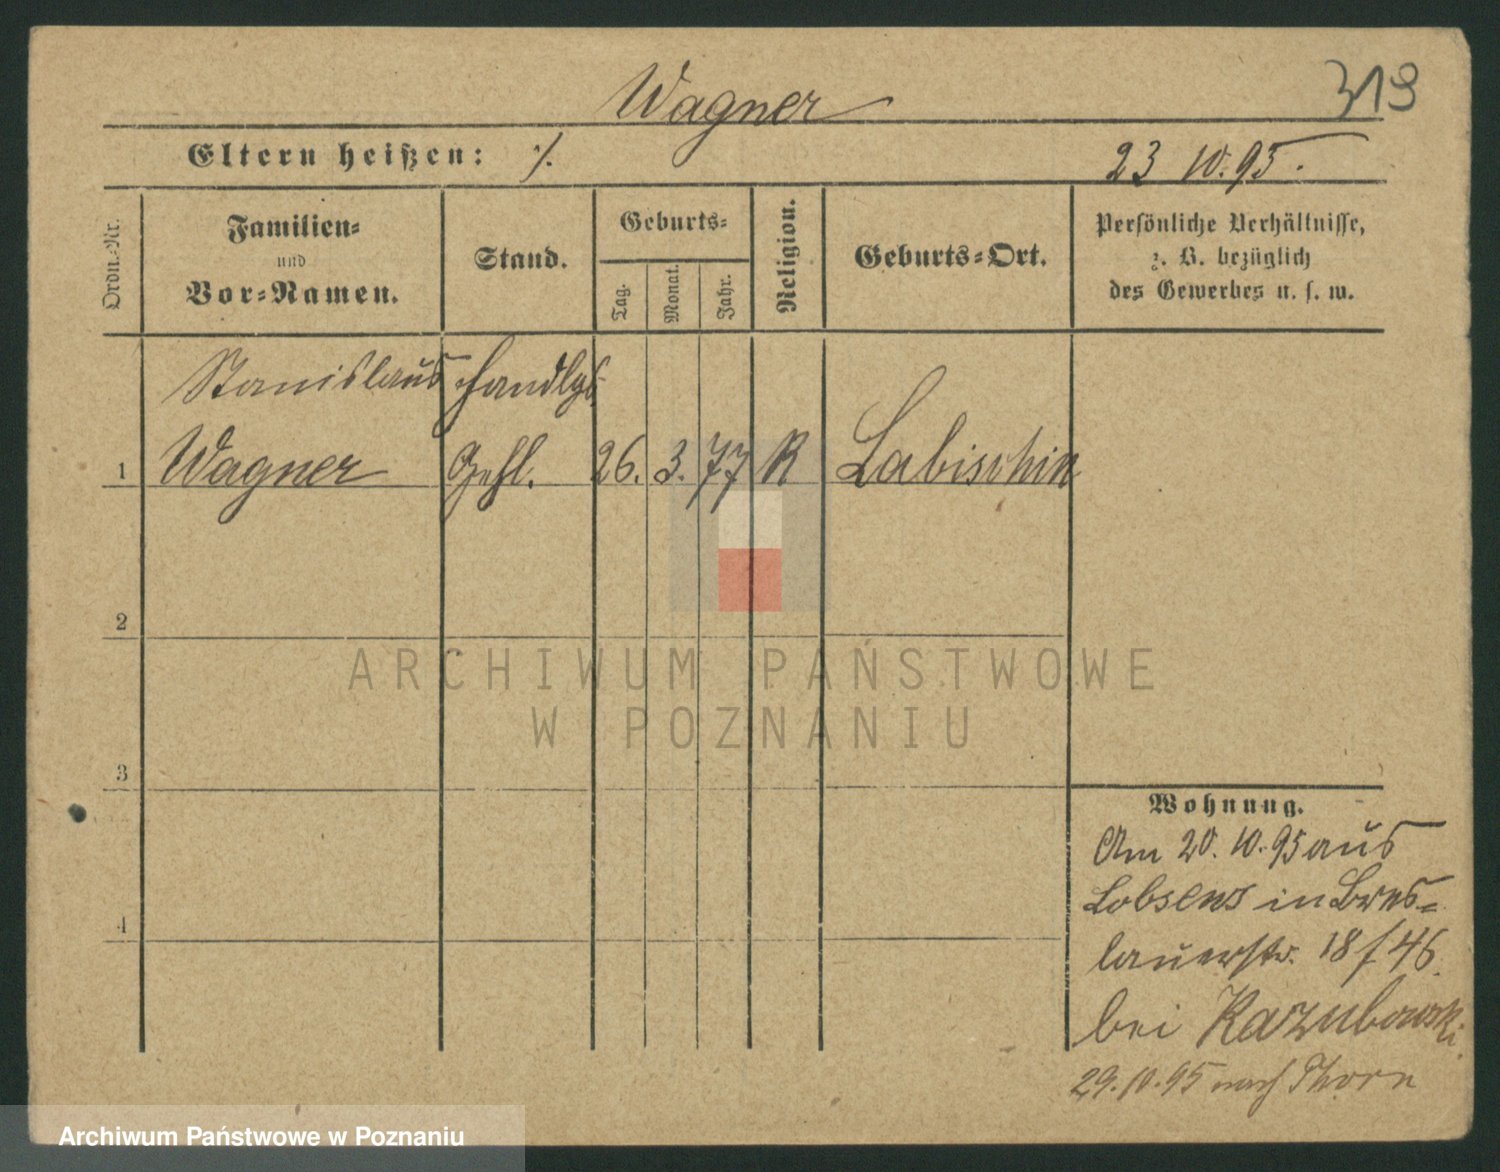 Wagner
319
Eltern heißen: ·/.
23 10. 95.
Ordn.-Nr.
Familien-
und
Vor-Namen.
Stand.
Geburts-
Tag.
Monat.
Jahr.
Religion.
Geburts-Ort.
Persönliche Verhältnisse,
z. B. bezüglich
des Gewerbes u. s. w.
Stanislaus Handlgs.
1 Wagner Gehl. 26. 3. 77 R Labischin
2
3
4
Wohnung.
Am 20. 10. 95 aus
Lobsens in Bres-
lauerstr. 18 / 46.
bei Kazubowski.
29. 10. 95 nach Thorn
ARCHIWUM PAŃSTWOWE
W POZNANIU
Archiwum Państwowe w Poznaniu